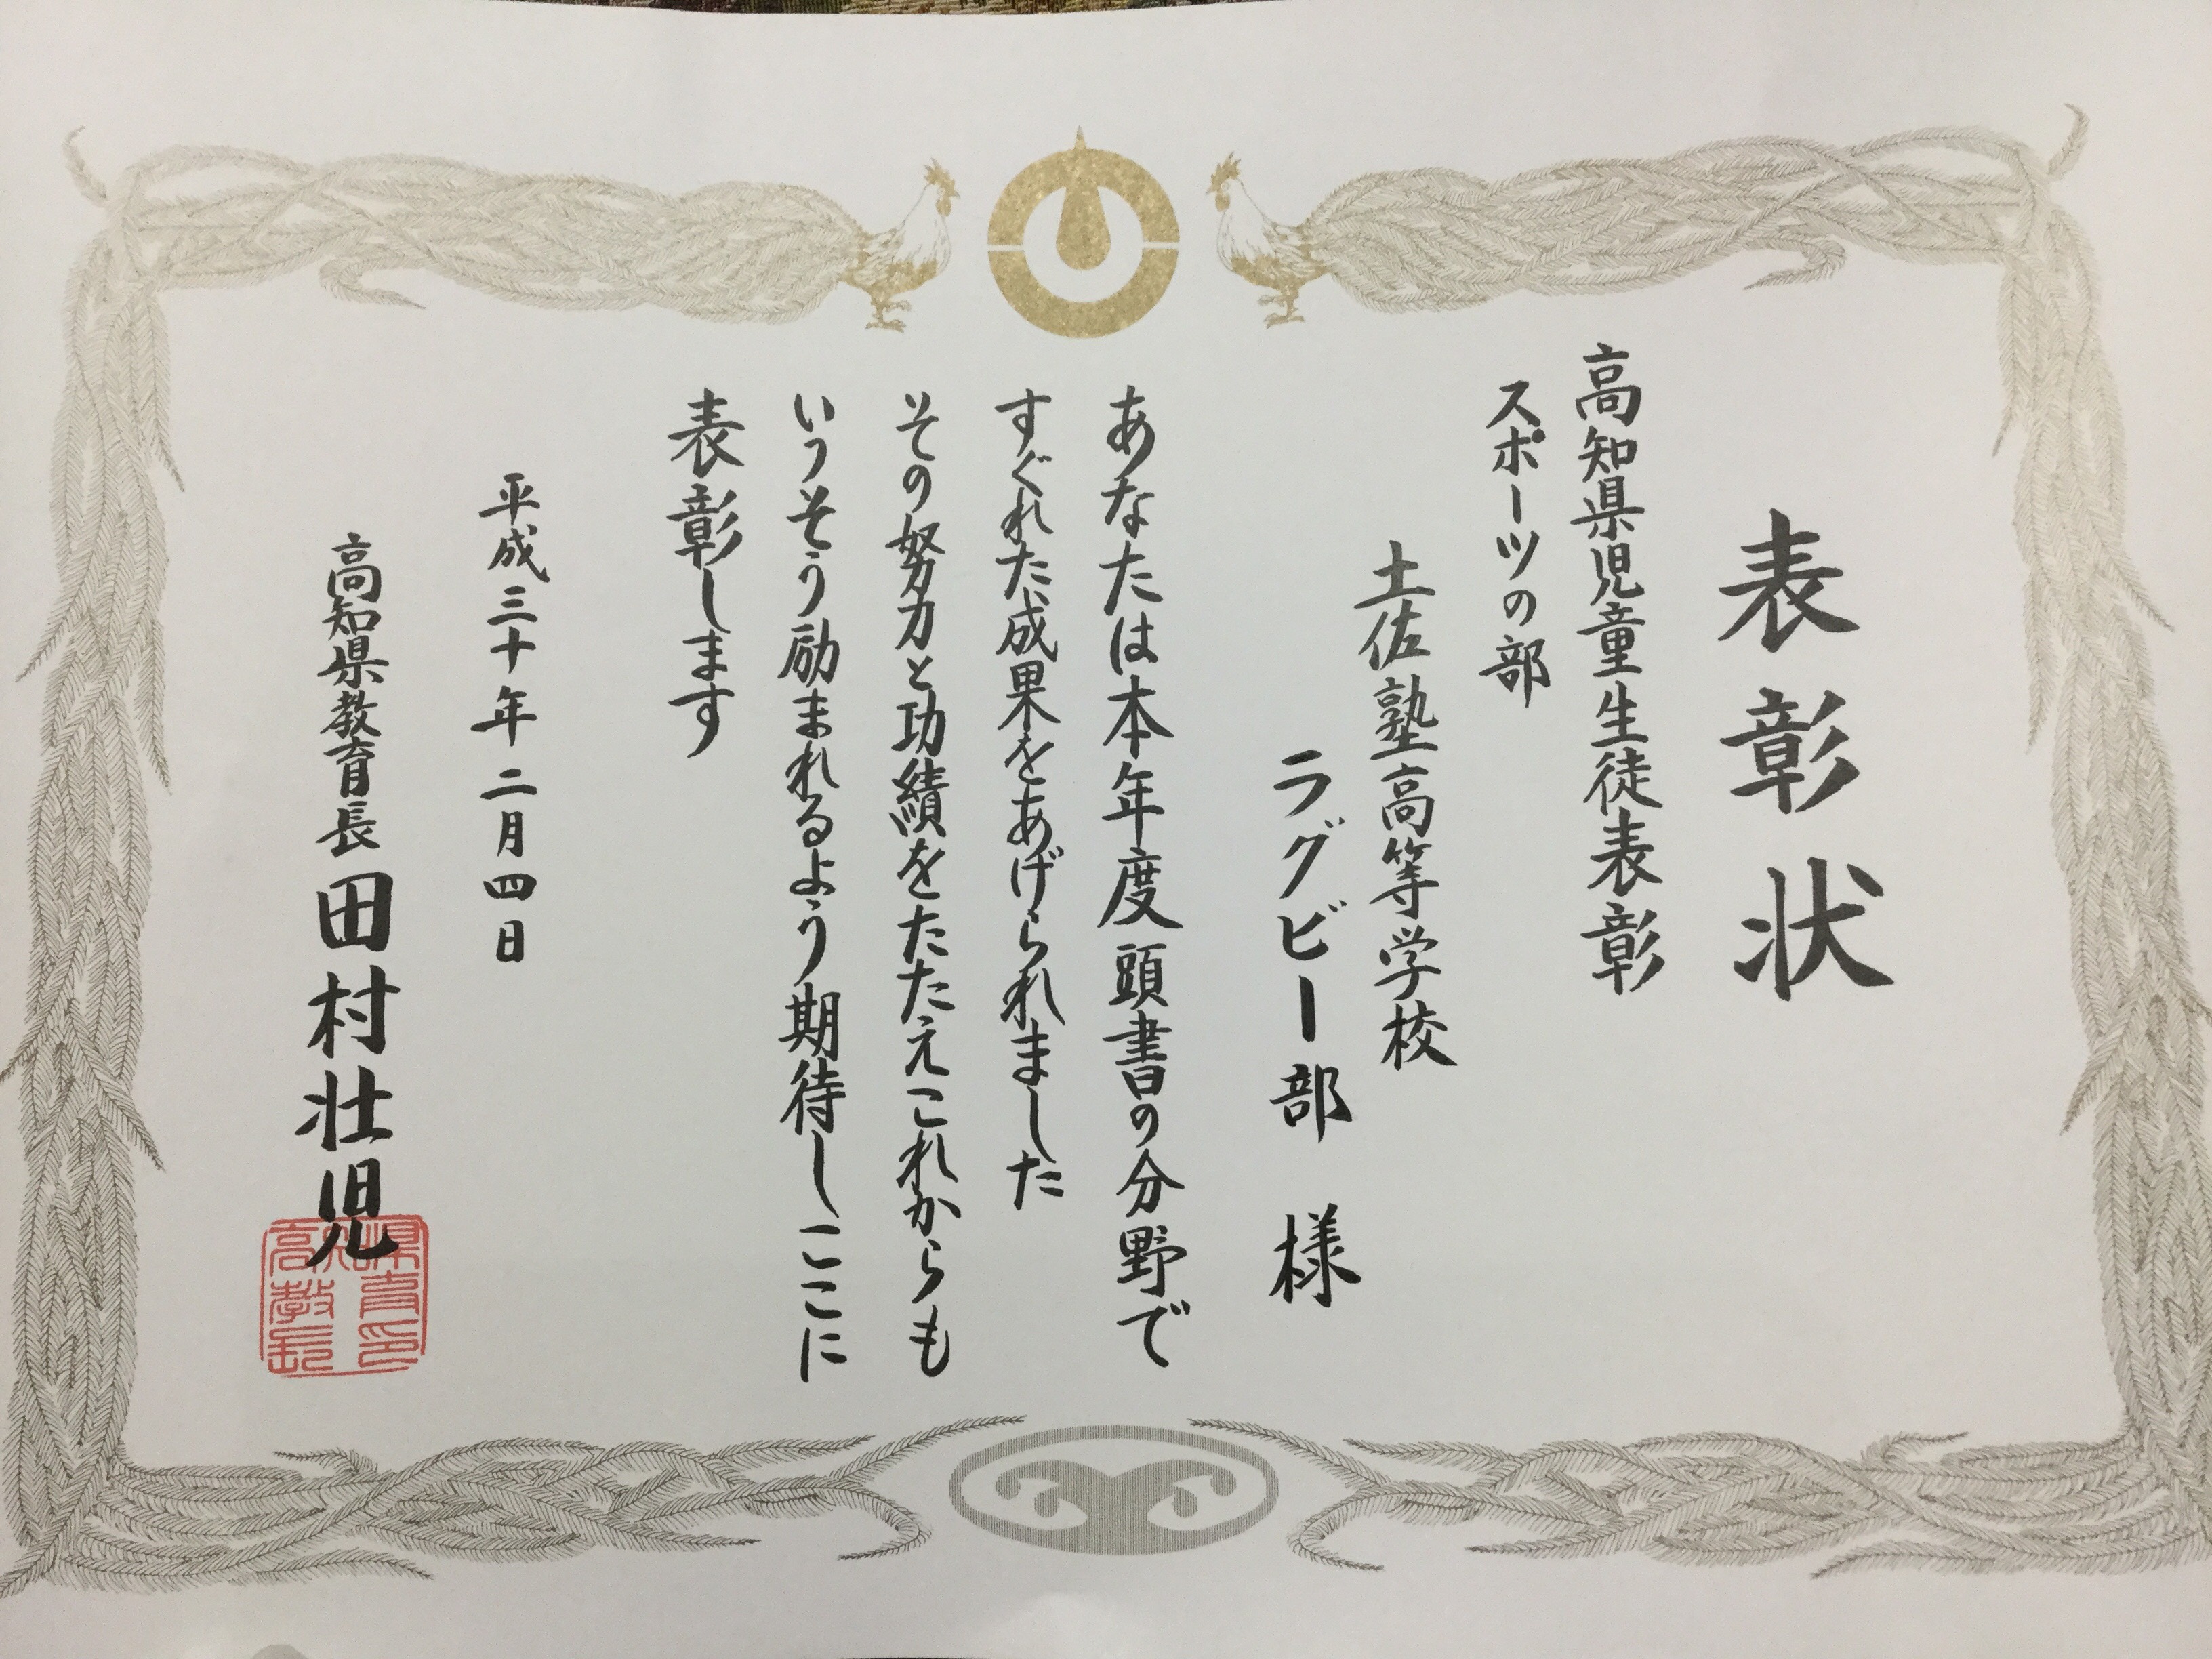 表彰状
高知県児童生徒表彰
スポーツの部
土佐塾高等学校
ラグビー部 様
あなたは本年度頭書の分野で
すぐれた成果をあげられました
その努力と功績をたたえこれからも
いっそう励まれるよう期待しここに
表彰します
平成三十年二月四日
高知県教育長 田村壮児